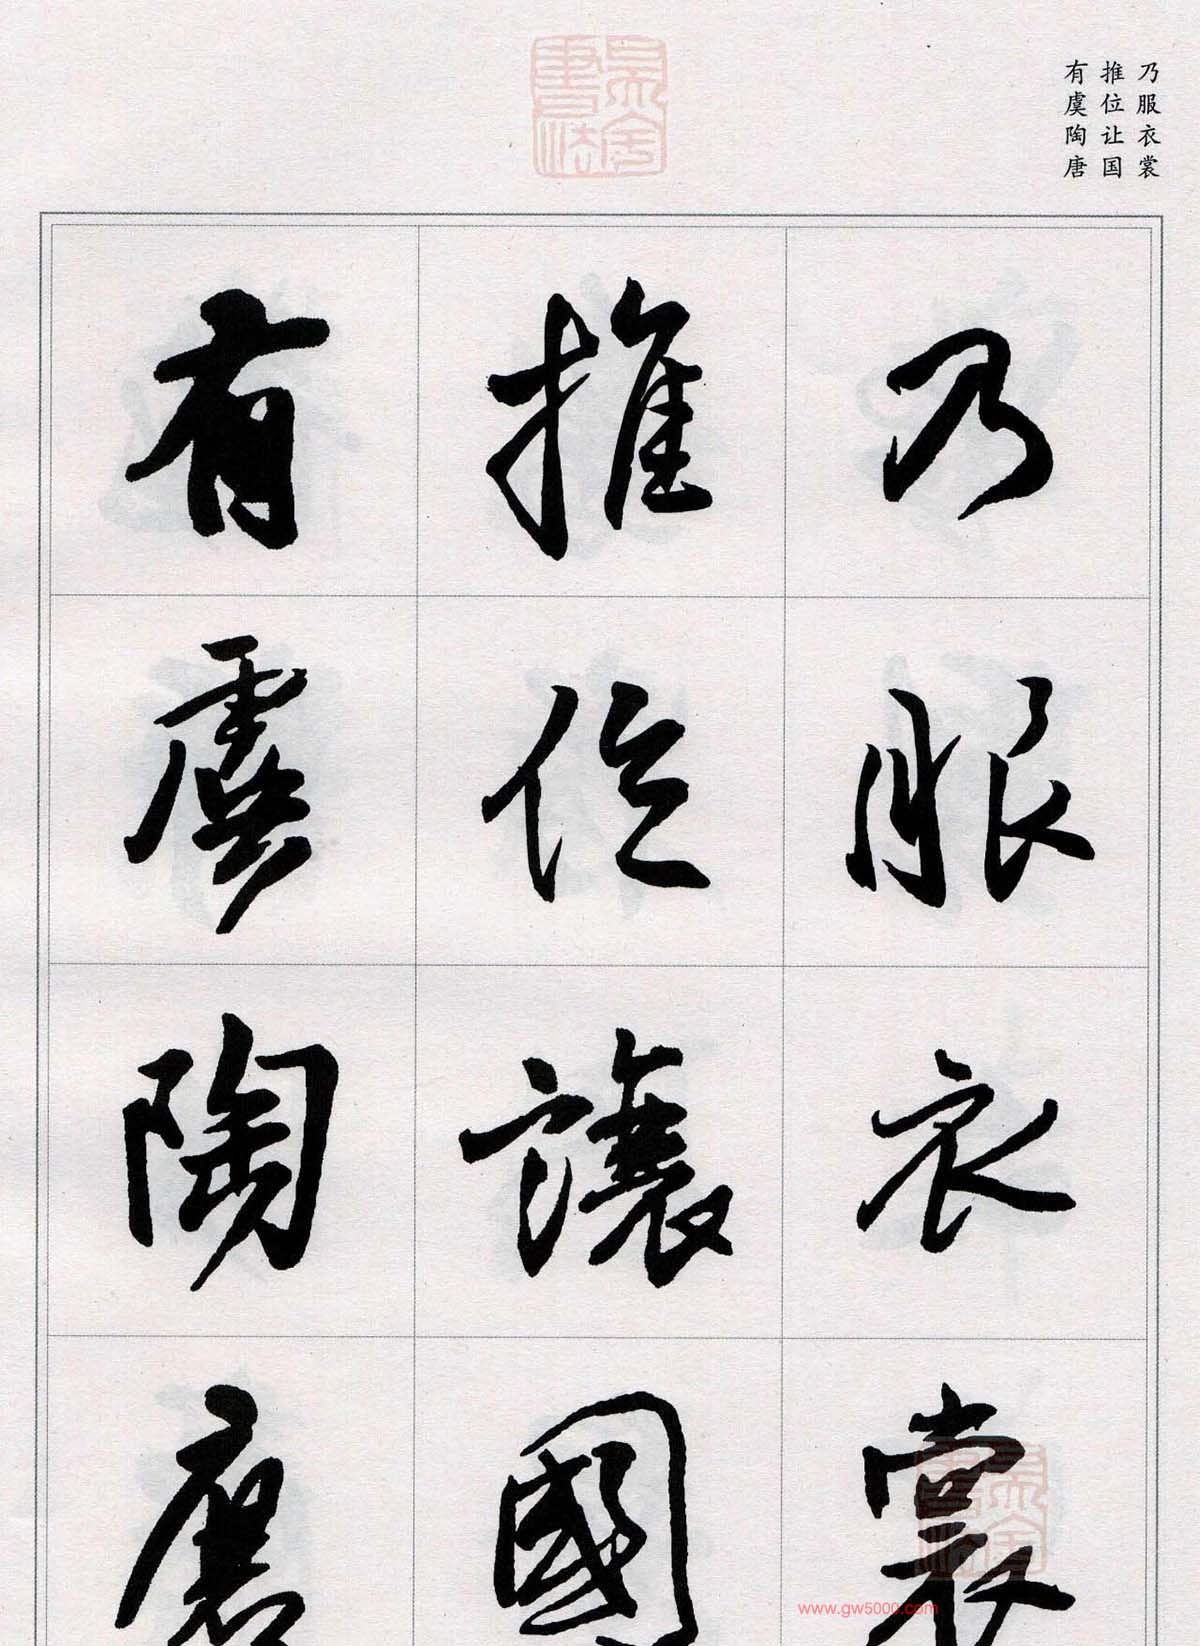 乃服衣裳
推位让国
有虞陶唐
乃服衣裳
推位讓國
有虞陶唐
www.gw5000.com